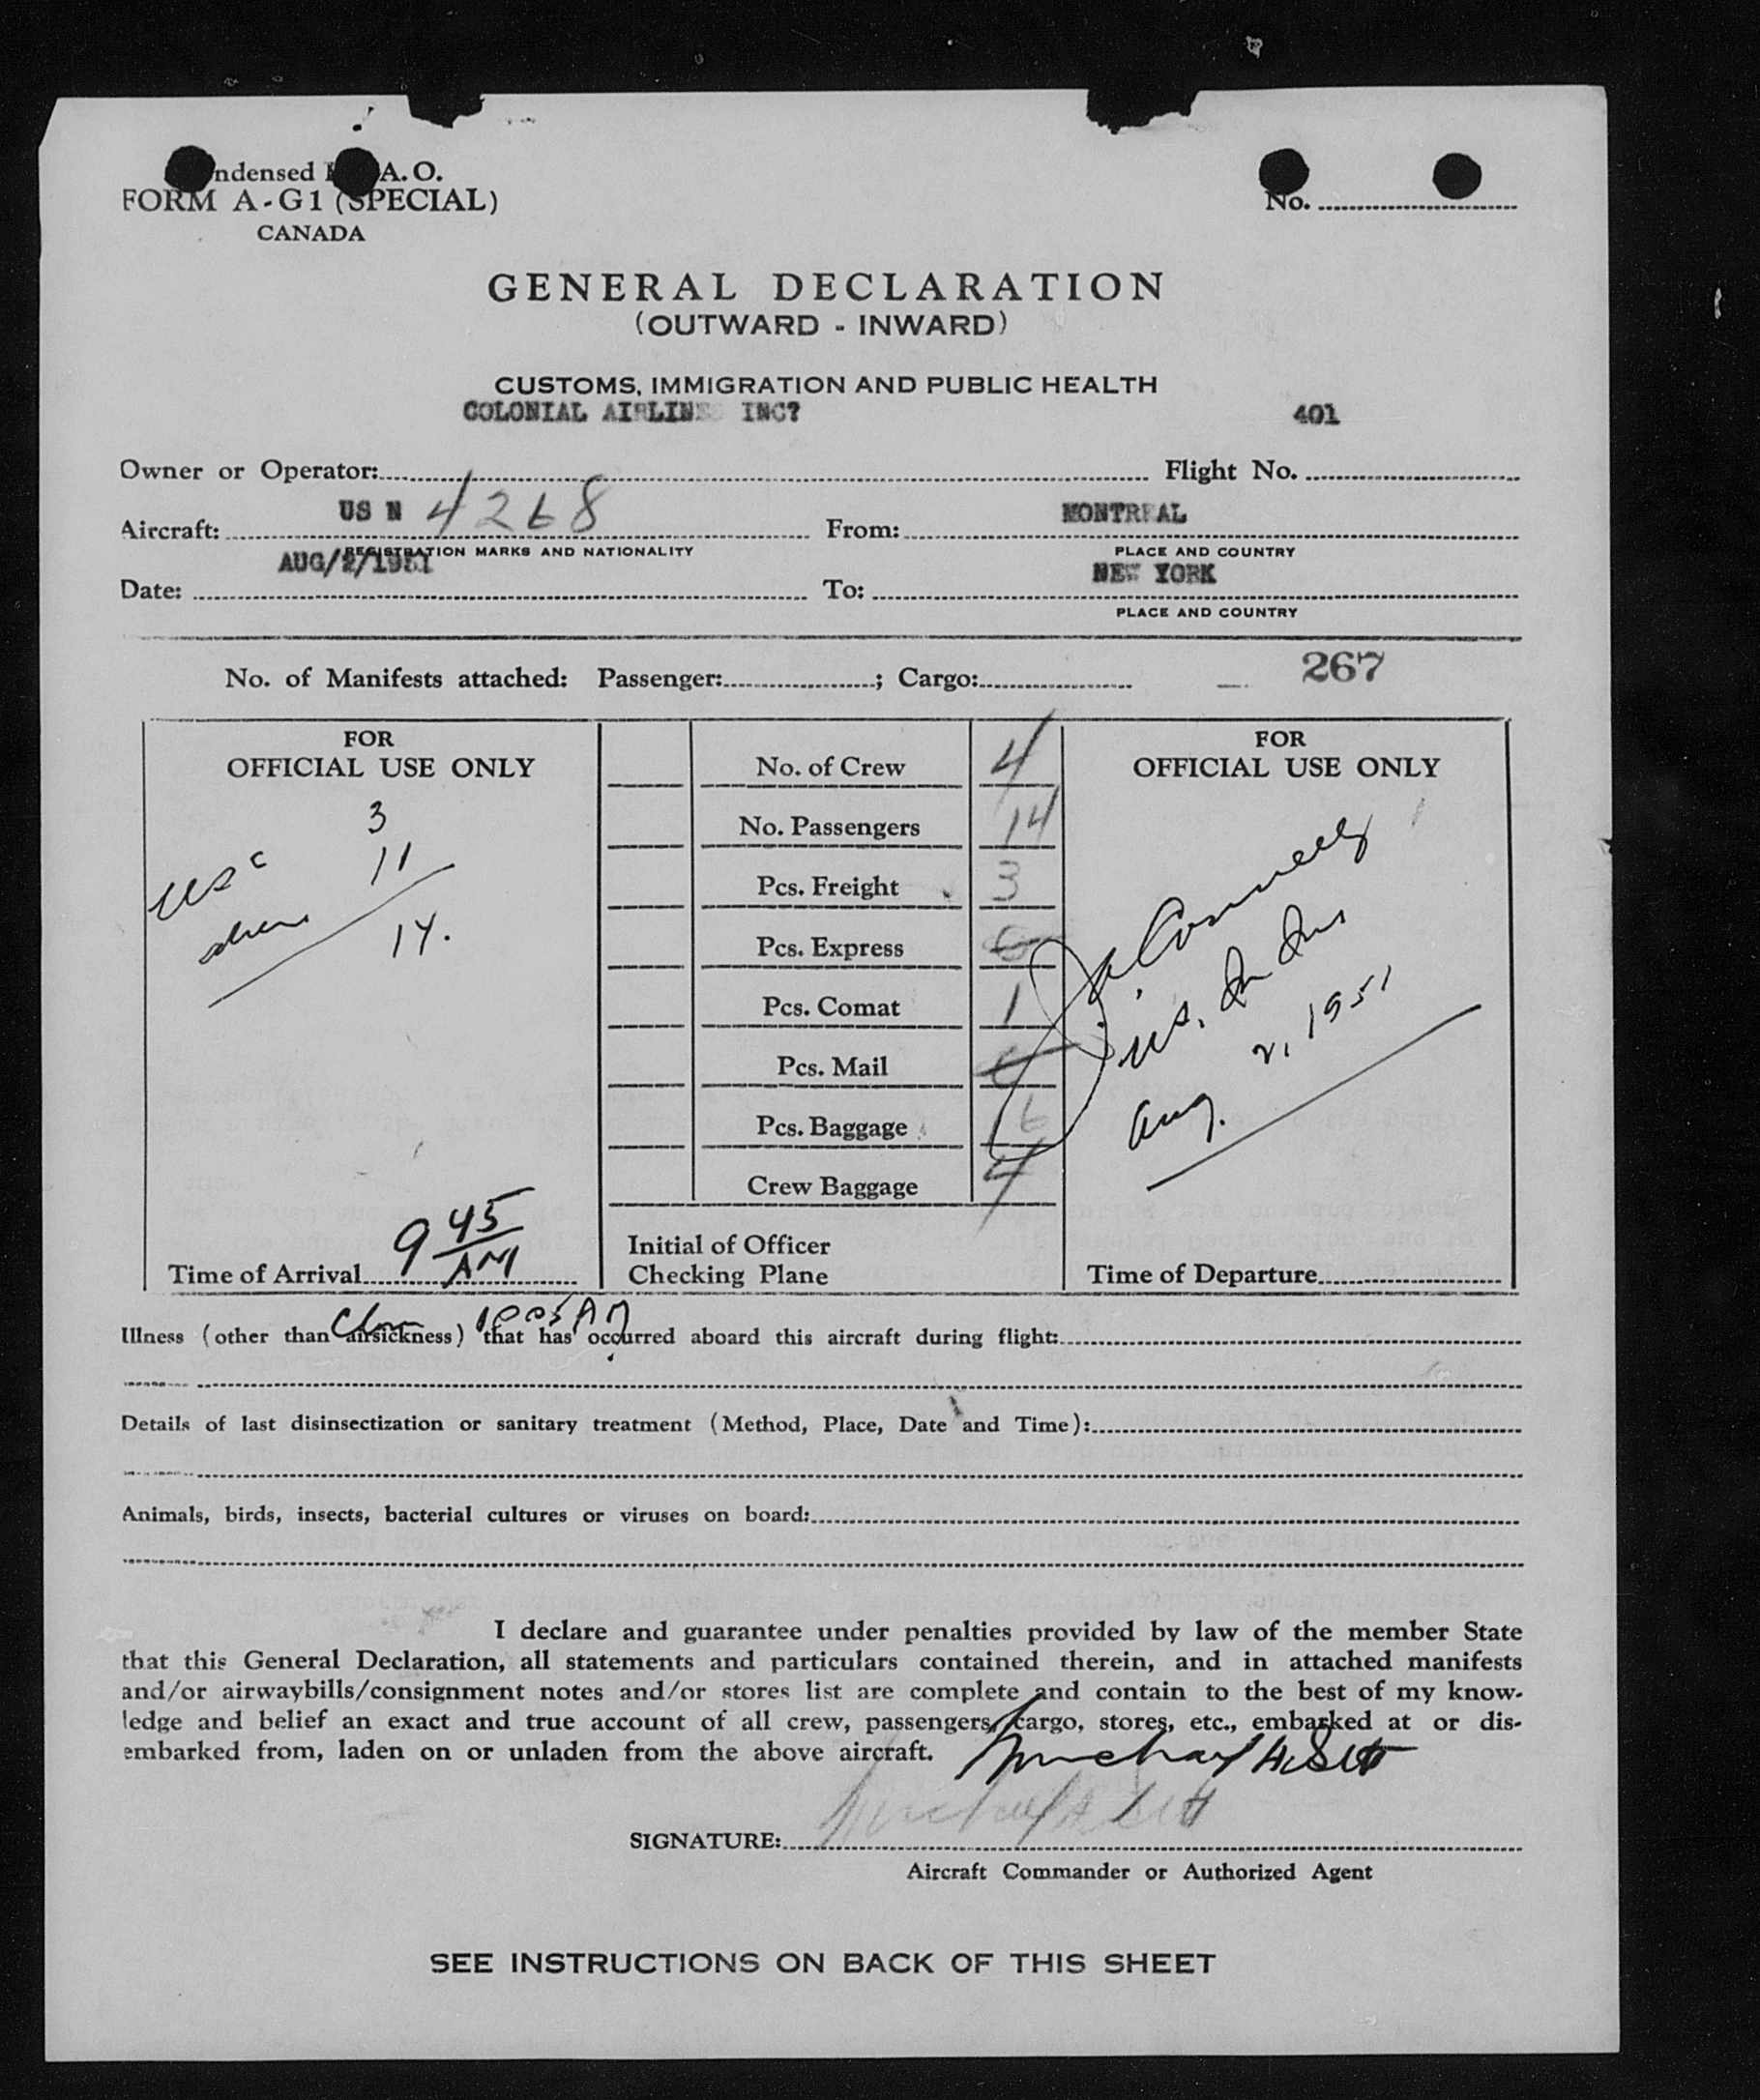 ndensed A.O.
FORM A-G1 (SPECIAL)
CANADA
No.
GENERAL DECLARATION
(OUTWARD - INWARD)
CUSTOMS, IMMIGRATION AND PUBLIC HEALTH
COLONIAL AIRLINES INC? 401
Owner or Operator: Flight No.
US N 4268 MONTREAL
Aircraft: From:
REGISTRATION MARKS AND NATIONALITY PLACE AND COUNTRY
AUG/2/1951 NEW YORK
Date: To:
PLACE AND COUNTRY
No. of Manifests attached: Passenger: ; Cargo: 267
FOR
OFFICIAL USE ONLY
USC 3
aliens 11
14.
Time of Arrival 9 45 AM
No. of Crew 4
No. Passengers 14
Pcs. Freight 3
Pcs. Express 0
Pcs. Comat 1
Pcs. Mail
Pcs. Baggage 16
Crew Baggage 4
Initial of Officer
Checking Plane
FOR
OFFICIAL USE ONLY
U.S. Im Ins
Aug. 2, 1951
Time of Departure
1005 AM
Illness (other than airsickness) that has occurred aboard this aircraft during flight:
Details of last disinsectization or sanitary treatment (Method, Place, Date and Time):
Animals, birds, insects, bacterial cultures or viruses on board:
I declare and guarantee under penalties provided by law of the member State
that this General Declaration, all statements and particulars contained therein, and in attached manifests
and/or airwaybills/consignment notes and/or stores list are complete and contain to the best of my know-
ledge and belief an exact and true account of all crew, passengers, cargo, stores, etc., embarked at or dis-
embarked from, laden on or unladen from the above aircraft.
SIGNATURE:
Aircraft Commander or Authorized Agent
SEE INSTRUCTIONS ON BACK OF THIS SHEET